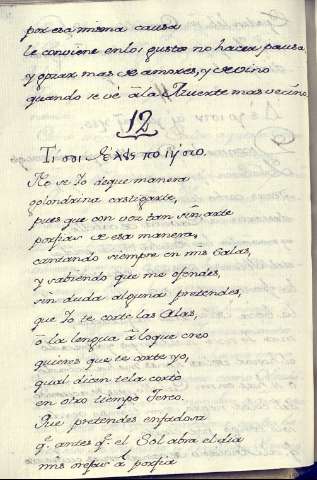 por esa misma causa
le conviene en los gustos no hacer pausa,
y gozar mas de amores, y de vino
quando se vé à la Muerte mas vecino.
12
Τί σοι θέλεις ποιήσω.
No se Yo de que manera
golondrina castigarte,
pues que con voz tan sin arte
porfias de esa manera,
cantando siempre en mis Salas,
y sabiendo que me ofendes,
sin duda alguna pretendes,
que Yo te corte las Alas,
ò la lengua à lo que creo
quieres que te corte yo,
qual dicen te la cortò
en otro tiempo Tereo.
Que pretendes enfadosa
q.e antes q.e el Sol abra el dia
mis orejas à porfia